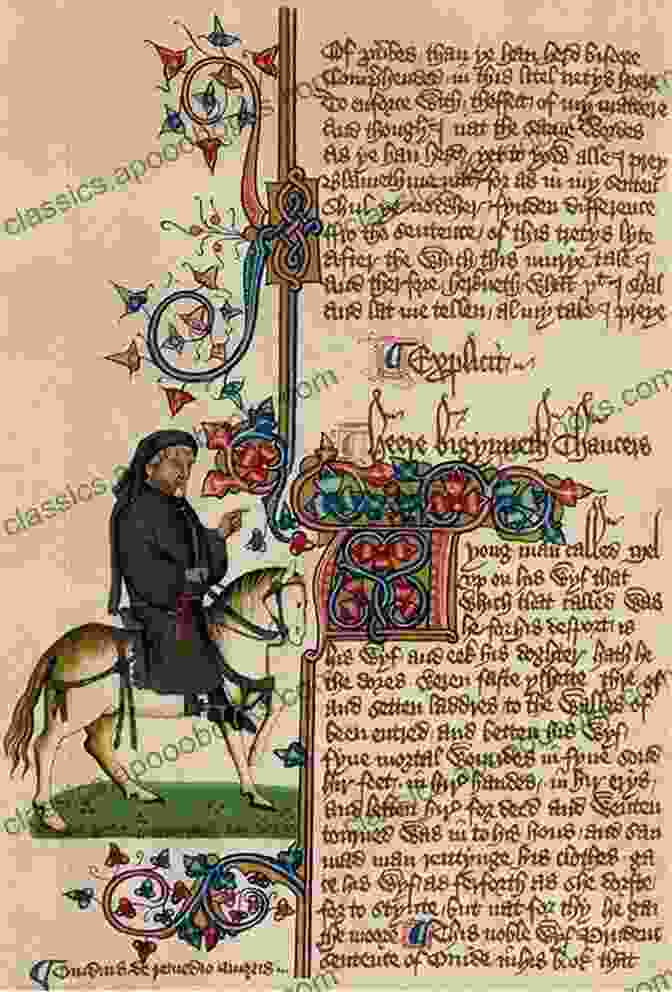 Of than ye han herd bifore
Comprehended in this litel tretys heere
To enforce with theffect of my mateere
And though I nat the same Wordes
As ye han herd yet to yow alle I prey
Blameth me nat for as in my senten
Shul ye nowher fynden difference
ffro the sentence of this tretys lyte
After the Which this murye tale I
And therfore herkneth What yt I shal
And lat me tellen al my tale I preye
Explicit
heere bigynneth Chaucers
yong man called Mel
up on his Wyf that
Which that called Was
he for his desport is
his Wyf and eek his doghter hath he
the dores Weren faste yshette thre of
and setten laddres to the Walles of
been entred and betten his Wyf
fyve mortal Woundes in fyve sond
hir feet in hir handes in hir erys
and leften hir for deed and Wenten
torned Was in to his hous and saa
mad man rentynge his clothes ga
te his Wyf as ferforth as she dorste
for to stynte but nat for thy he gan
the moore This noble Wyf Prudent
sentence of Ovide in his book that
Ovidius de remedio amoris
classics.apooobooks.com
classics.apooobooks.com
classics.apooobooks.com